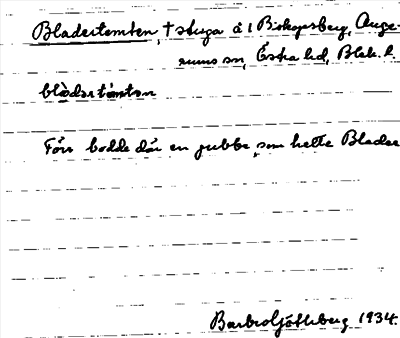 Bladertomten, † stuga å 1 Biskopsberg, Auge-
rums sn, Östra hd, Blek. l.
blàdertòmten
Förr bodde där en gubbe, som hette Blader
Barbro Götheberg 1934.